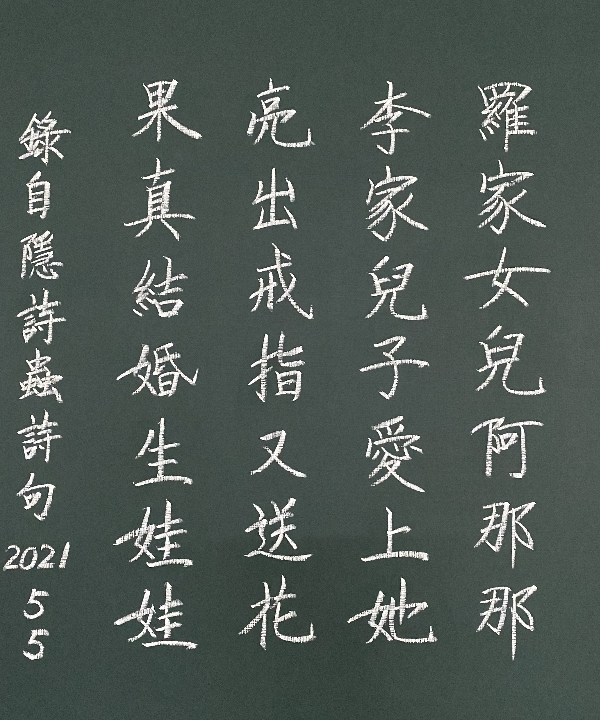 羅家女兒阿那那
李家兒子愛上她
亮出戒指又送花
果真結婚生娃娃
錄自隱詩蟲詩句
2021
5
5